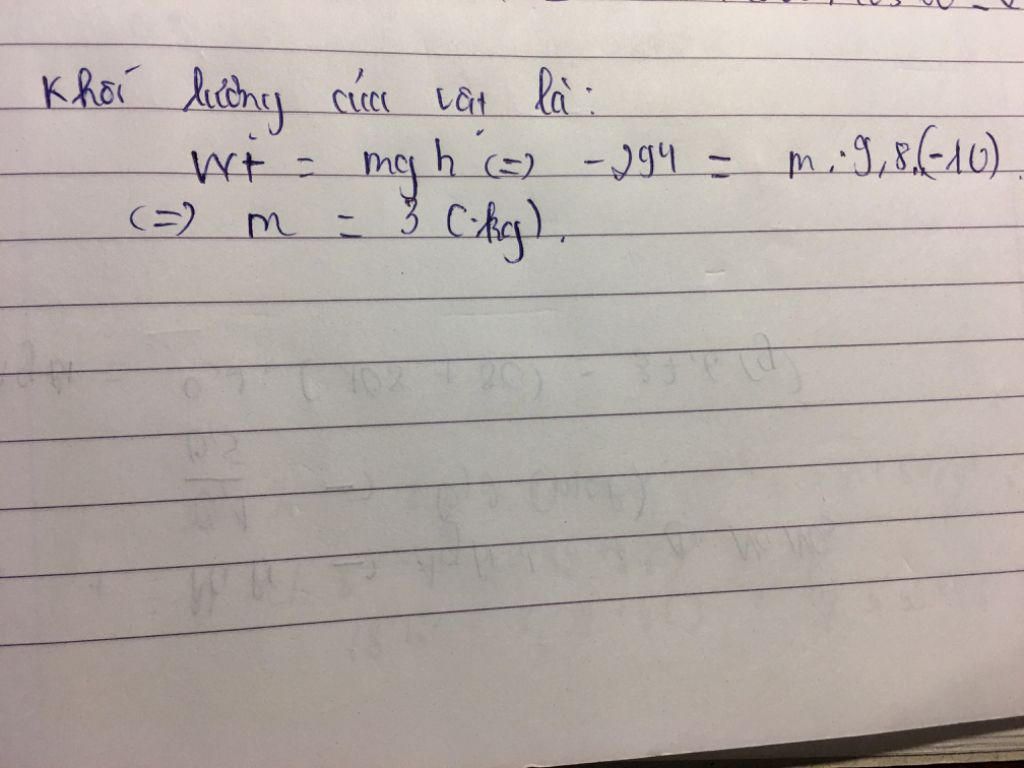 Khối lượng của vật là:
Wt = mgh (=) -294 = m.9,8.(-10)
(=) m = 3 (kg).